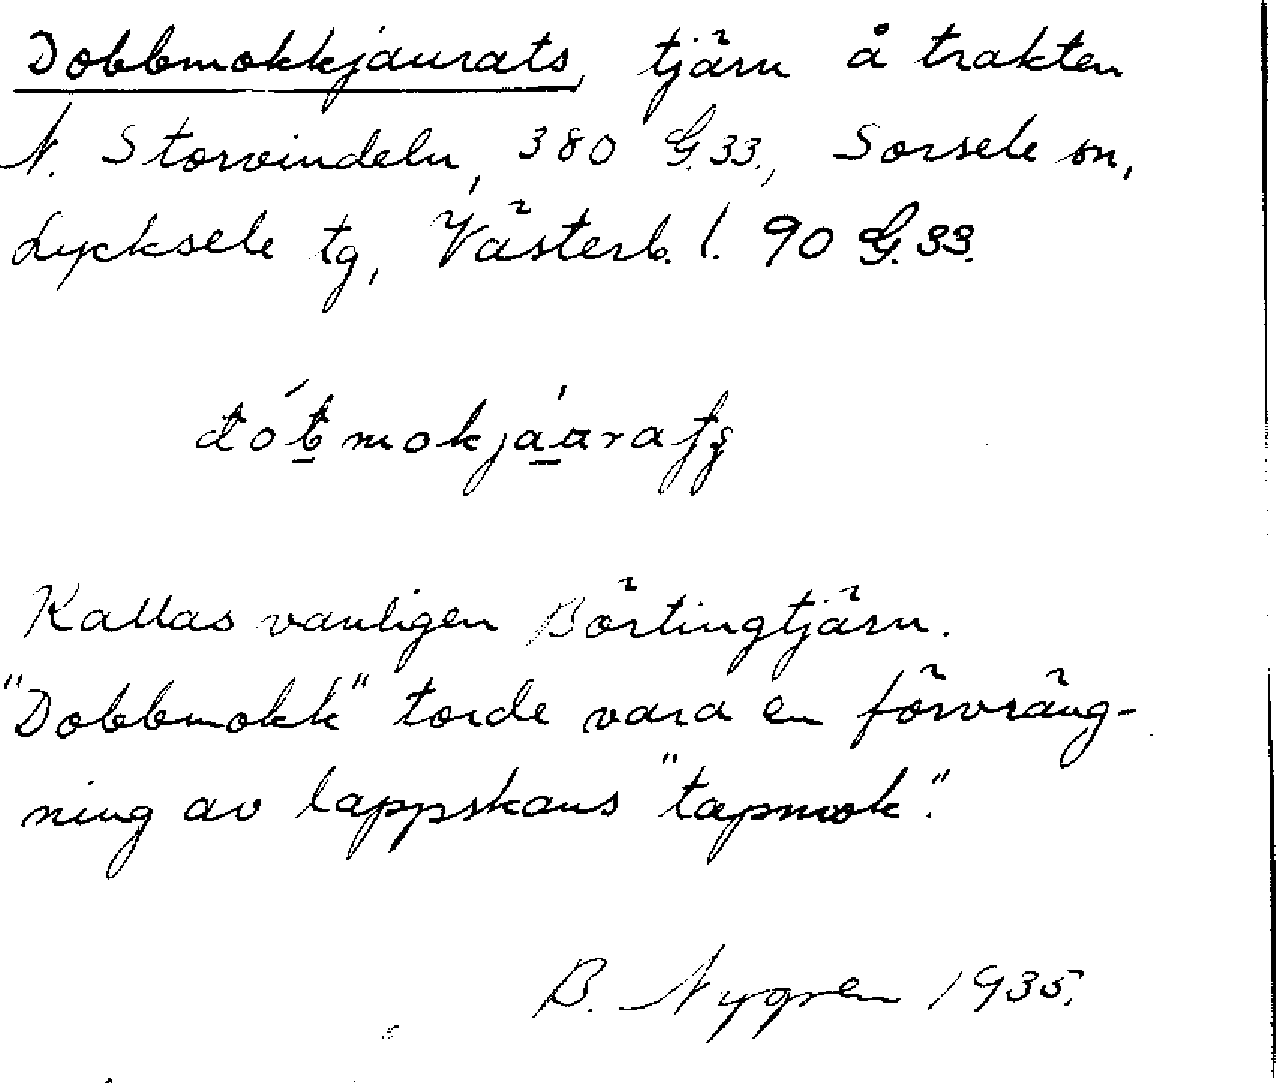 Dobbmokkjaurats, tjärn å trakten
N. Storvindeln, 380 G.33., Sorsele sn,
Lycksele tg, Västerb. l. 90 G.33.
Kallas vanligen Börtingtjärn.
"Dobbmokk" torde vara en förvräng-
ning av lappskans "tapmok".
B. Nygren 1935.